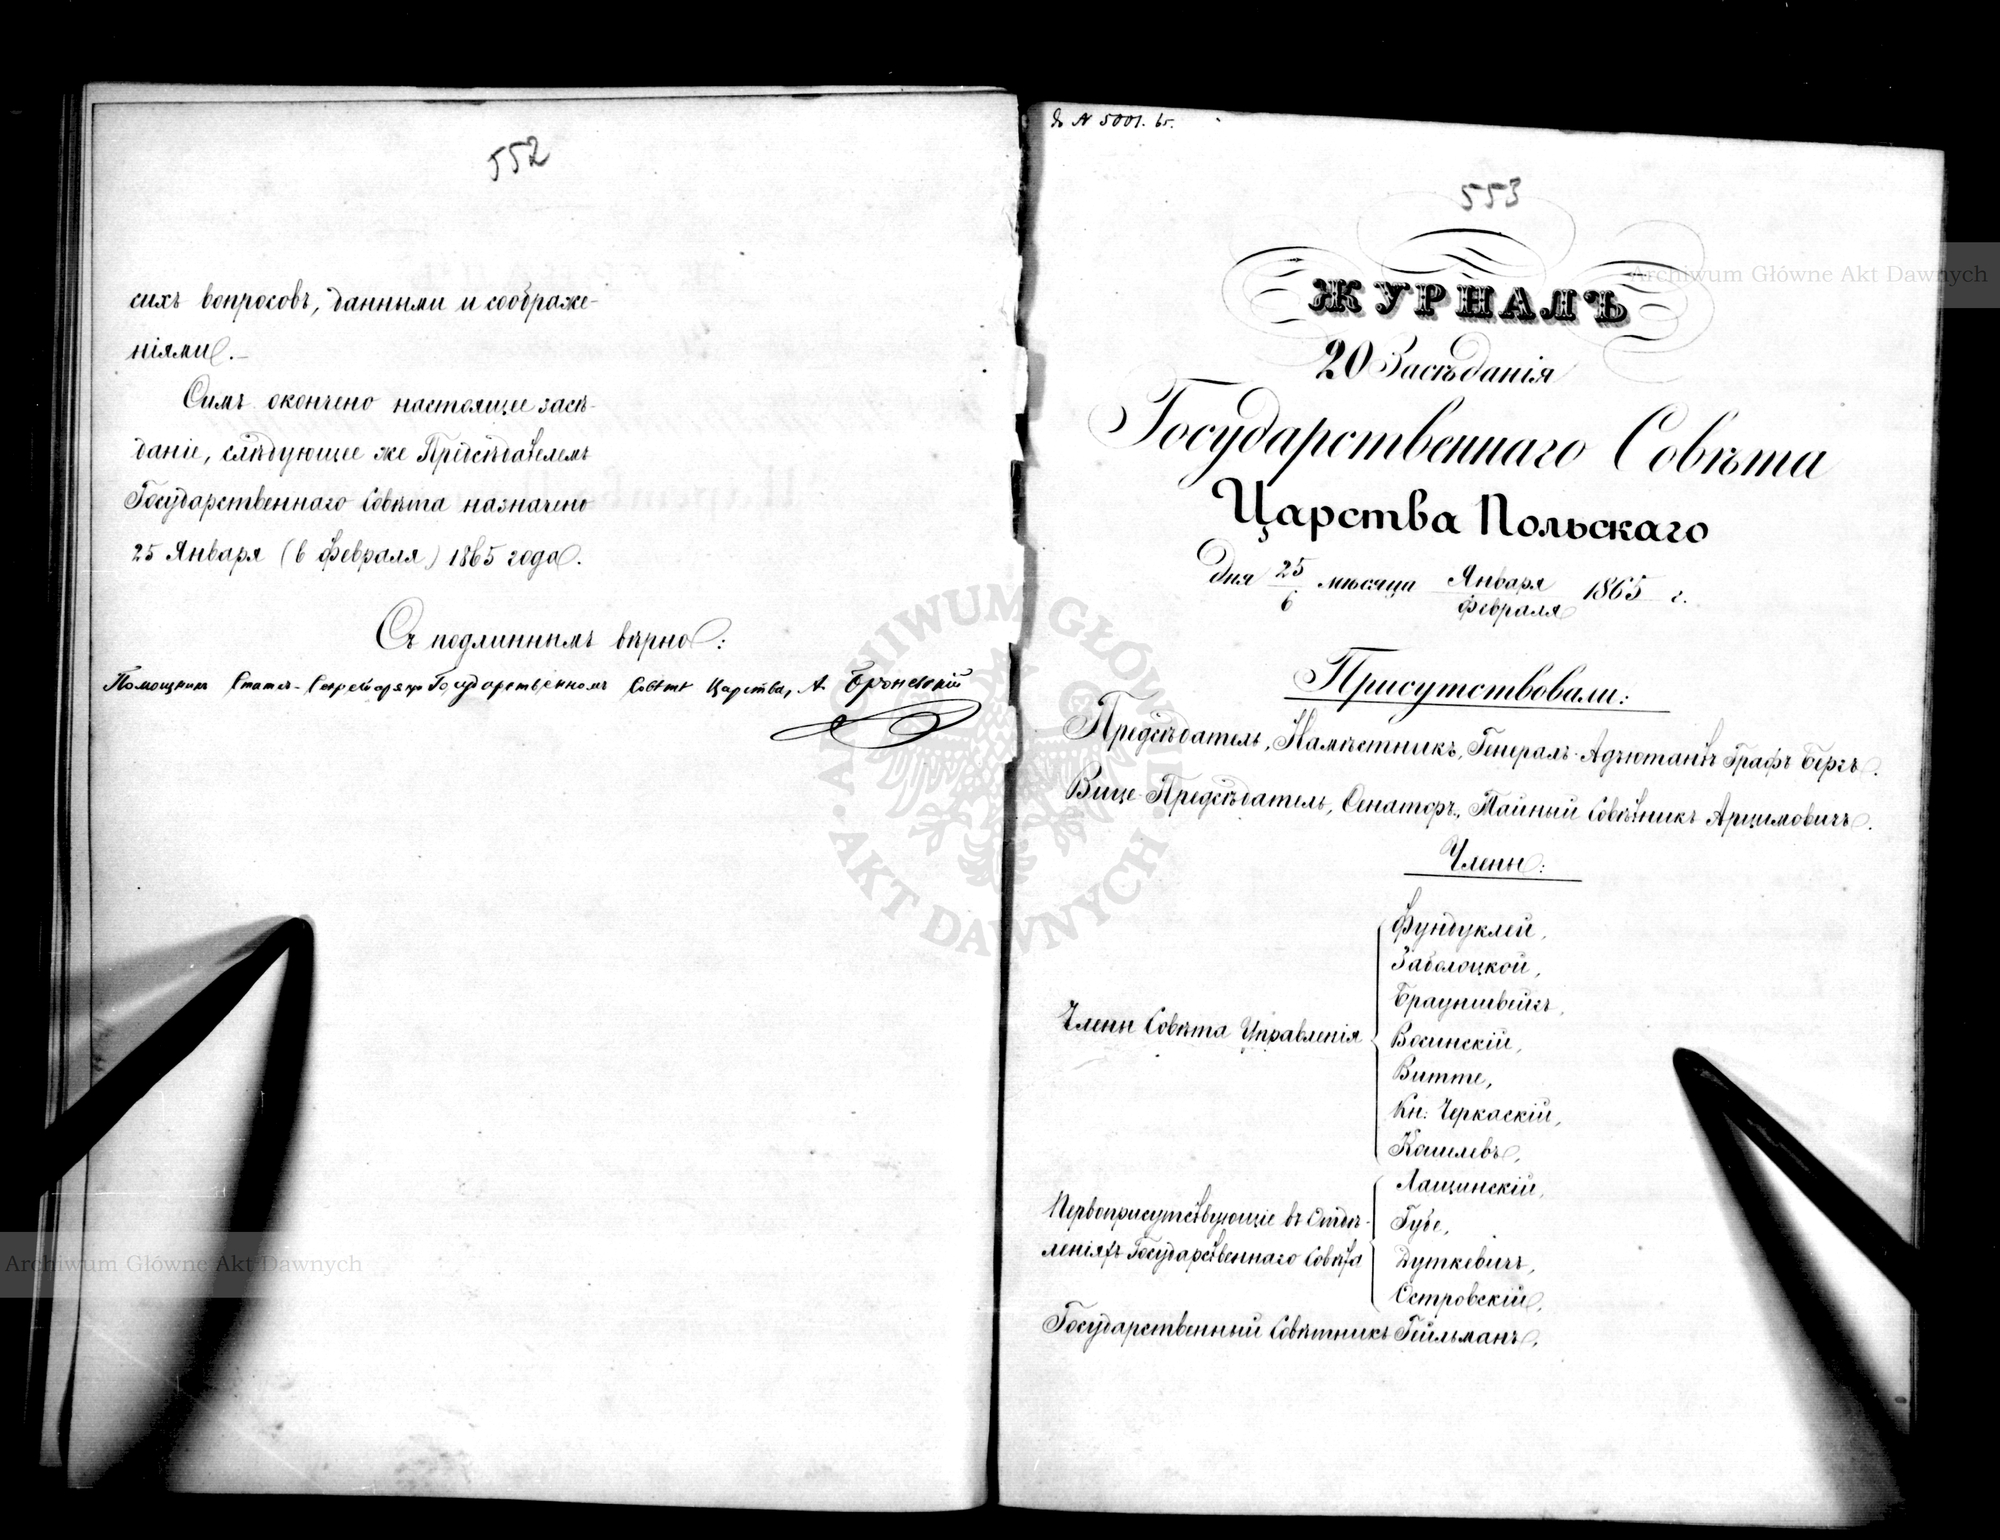 552
сихъ вопросовъ, данными и соображе-
ніями.
Симъ окончено настоящее засѣ-
даніе, слѣдующее же Предсѣдателемъ
Государственнаго Совѣта назначено
25 Января (6 Февраля) 1865 года.
Съ подлиннымъ вѣрно:
Помощникъ Статсъ-Секретаря при Государственномъ Совѣтѣ Царства, А. Бронскій
№ 5001. 65.
553
ЖУРНАЛЪ
20 Засѣданія
Государственнаго Совѣта
Царства Польскаго
Дня 25/6 мѣсяца Января/Февраля 1865 г.
Присутствовали:
Предсѣдатель, Намѣстникъ, Генералъ-Адъютантъ Графъ Бергъ.
Вице-Предсѣдатель, Сенаторъ, Тайный Совѣтникъ Арцимовичъ.
Члены:
Члены Совѣта Управленія
Фундуклей,
Заболоцкой,
Брауншвейгъ,
Восинскій,
Витте,
Кн: Черкаскій,
Кошелевъ,
Первоприсутствующіе въ Отдѣ-
леніяхъ Государственнаго Совѣта
Лащинскій,
Губе,
Дуткевичъ,
Островскій,
Государственный Совѣтникъ Гейльманъ,
Archiwum Główne Akt Dawnych
Archiwum Główne Akt Dawnych
ARCHIWUM GŁÓWNE AKT DAWNYCH